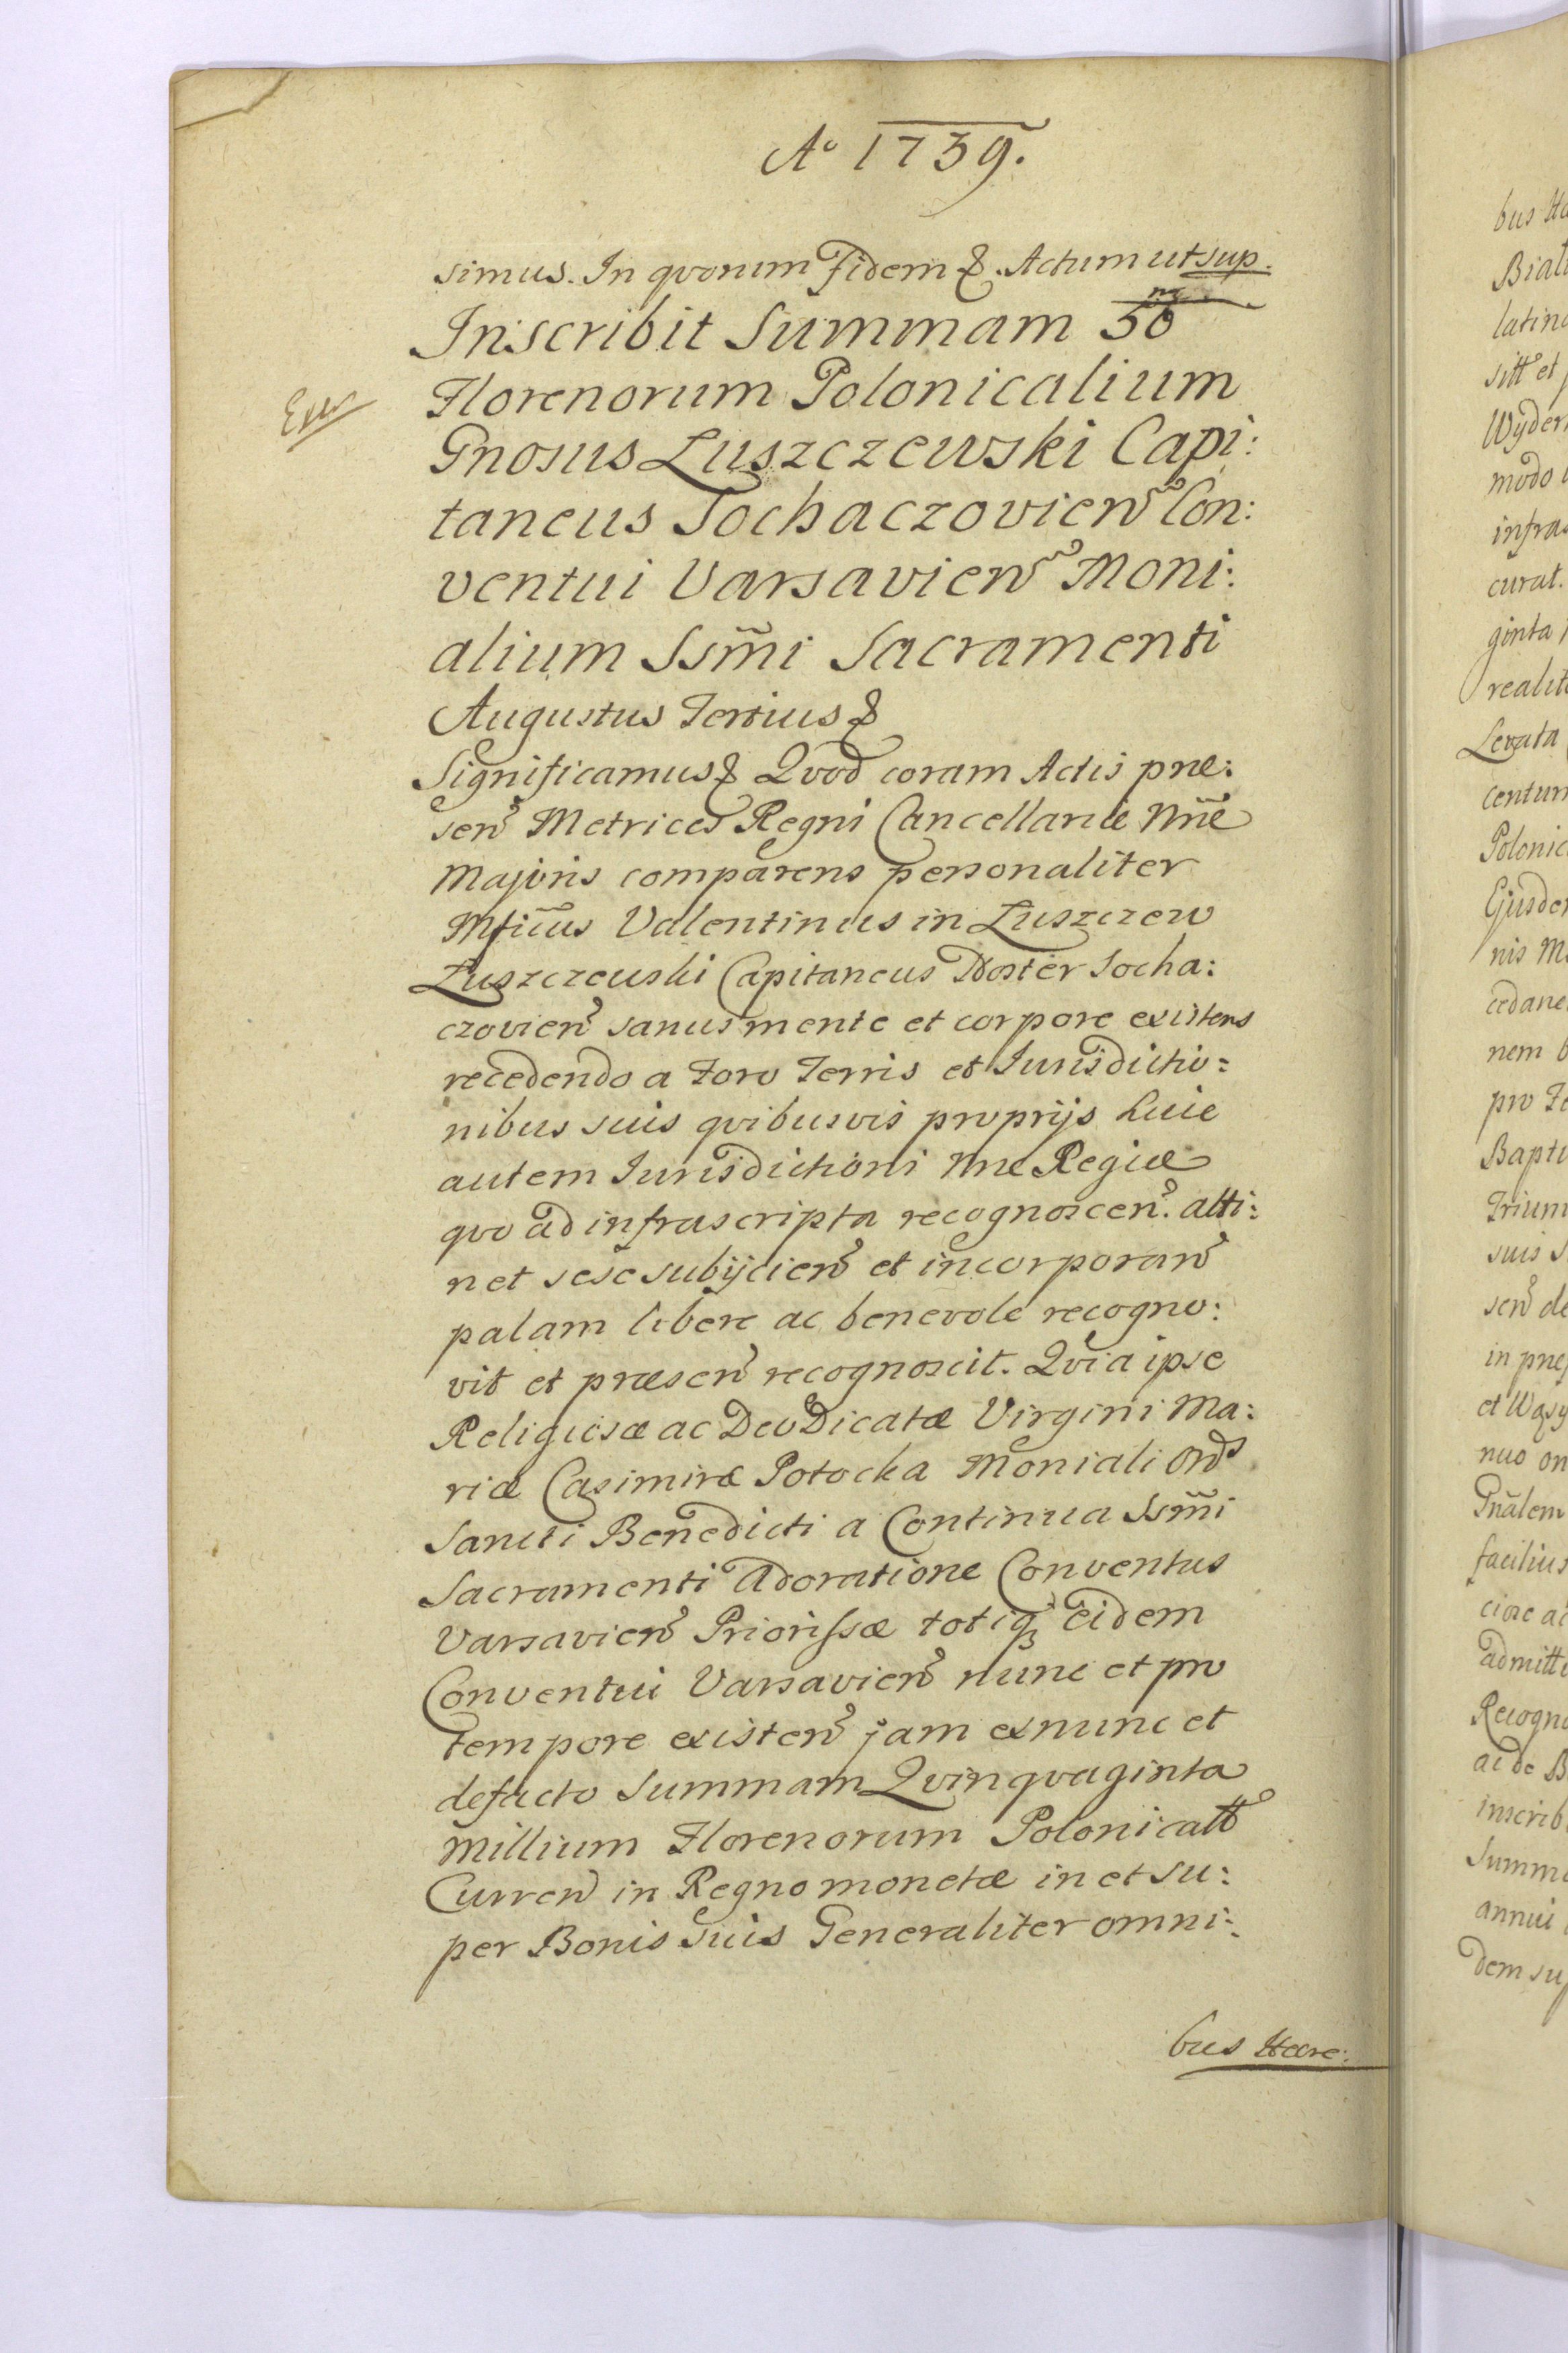 Aᵒ 1739.
simus. In qvorum fidem &. Actum ut sup.
Inscribit Summam 50 m
Florenorum Polonicalium
Gnosus Łuszczewski Capi:
taneus Sochaczovien̄ Con:
ventui Varsavien̄ Moni:
alium Ssm̃i Sacramenti
Augustus Tertius &
Significamus & Qvod coram Actis præ:
sen̄ Metrices Regni Cancellariæ Nr̃æ
Majoris comparens personaliter
Mficus Valentinus in Łuszczew
Łuszczewski Capitaneus Noster Socha:
czovien̄ sanus mente et corpore existens
recedendo a Foro Terris et Jurisdictio:
nibus suis qvibusvis proprijs huic
autem Jurisdictioni Nræ Regiæ
qvo ad infrascripta recognoscen̄. atti:
net sese subijcien̄ et incorporan̄
palam libere ac benevole recogno:
vit et præsen̄ recognoscit. Qvia ipse
Religiosæ ac Deo Dicatæ Virgini Ma:
riæ Casimiræ Potocka Moniali Ords
Sancti Benedicti a Continua Ssm̃i
Sacramenti Adoratione Conventus
Varsavien̄ Priorissæ totiqꝫ eidem
Conventui Varsavien̄ nunc et pro
tempore existen̄ jam exnunc et
defacto Summam Qvinqvaginta
Millium Florenorum Polonicall
Curren̄ in Regno monetæ in et su:
per Bonis suis Generaliter omni:
bus Hære:
bus Hæ
Biał
latino
sitt et
Wyder
modo
infras
curat.
ginta
realit
Levata
centum
Polonic
Ejusde
nis M
cedane
nem b
pro Fe
Bapti
Trium
suis
sen̄ de
in præ
et Wąsy
nuo on
Gnãlem
facilius
ciore ac
admitt
Recogno
ac de B
inscrib
Summ
annui
dem sup